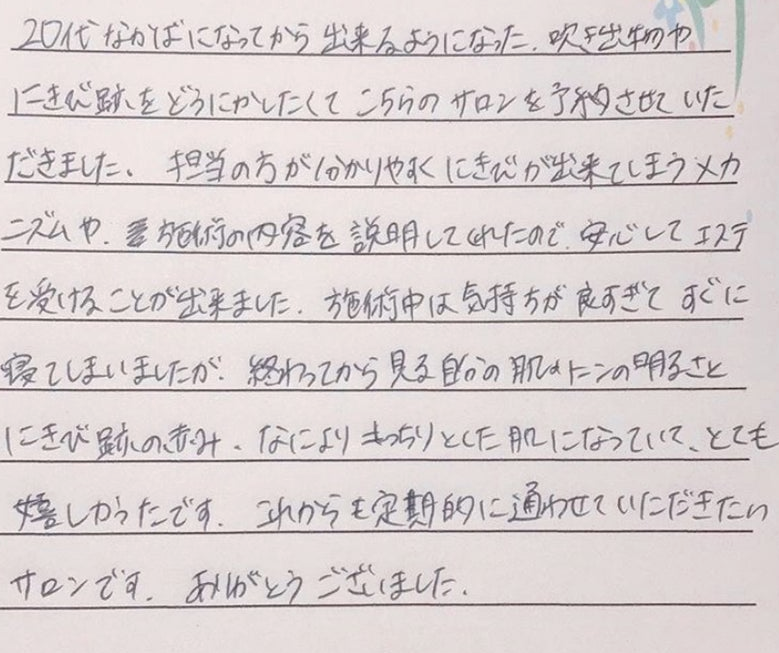 20代なかばになってから出来るようになった、吹き出物や
にきび跡をどうにかしたくてこちらのサロンを予約させていた
だきました。担当の方が分かりやすくにきびが出来てしまうメカ
ニズムや、施術の内容を説明してくれたので、安心してエステ
を受けることが出来ました。施術中は気持ちが良すぎてすぐに
寝てしまいましたが、終わってから見る自分の肌のトーンの明るさと
にきび跡の赤み、なによりもっちりとした肌になっていて、とても
嬉しかったです。これからも定期的に通わせていただきたい
サロンです。ありがとうございました。